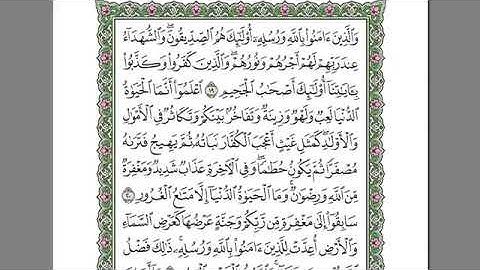 وَٱلَّذِينَ ءَامَنُوا۟ بِٱللَّهِ وَرُسُلِهِۦٓ أُو۟لَٰٓئِكَ هُمُ ٱلصِّدِّيقُونَ ۖ وَٱلشُّهَدَآءُ
عِندَ رَبِّهِمْ لَهُمْ أَجْرُهُمْ وَنُورُهُمْ ۖ وَٱلَّذِينَ كَفَرُوا۟ وَكَذَّبُوا۟
بِـَٔايَٰتِنَآ أُو۟لَٰٓئِكَ أَصْحَٰبُ ٱلْجَحِيمِ ١٩ ٱعْلَمُوٓا۟ أَنَّمَا ٱلْحَيَوٰةُ
ٱلدُّنْيَا لَعِبٌ وَلَهْوٌ وَزِينَةٌ وَتَفَاخُرٌۢ بَيْنَكُمْ وَتَكَاثُرٌ فِى ٱلْأَمْوَٰلِ
وَٱلْأَوْلَٰدِ ۖ كَمَثَلِ غَيْثٍ أَعْجَبَ ٱلْكُفَّارَ نَبَاتُهُۥ ثُمَّ يَهِيجُ فَتَرَىٰهُ
مُصْفَرًّا ثُمَّ يَكُونُ حُطَٰمًا ۖ وَفِى ٱلْءَاخِرَةِ عَذَابٌ شَدِيدٌ وَمَغْفِرَةٌ
مِّنَ ٱللَّهِ وَرِضْوَٰنٌ ۚ وَمَا ٱلْحَيَوٰةُ ٱلدُّنْيَآ إِلَّا مَتَٰعُ ٱلْغُرُورِ ٢٠
سَابِقُوٓا۟ إِلَىٰ مَغْفِرَةٍ مِّن رَّبِّكُمْ وَجَنَّةٍ عَرْضُهَا كَعَرْضِ ٱلسَّمَآءِ
وَٱلْأَرْضِ أُعِدَّتْ لِلَّذِينَ ءَامَنُوا۟ بِٱللَّهِ وَرُسُلِهِۦ ۚ ذَٰلِكَ فَضْلُ